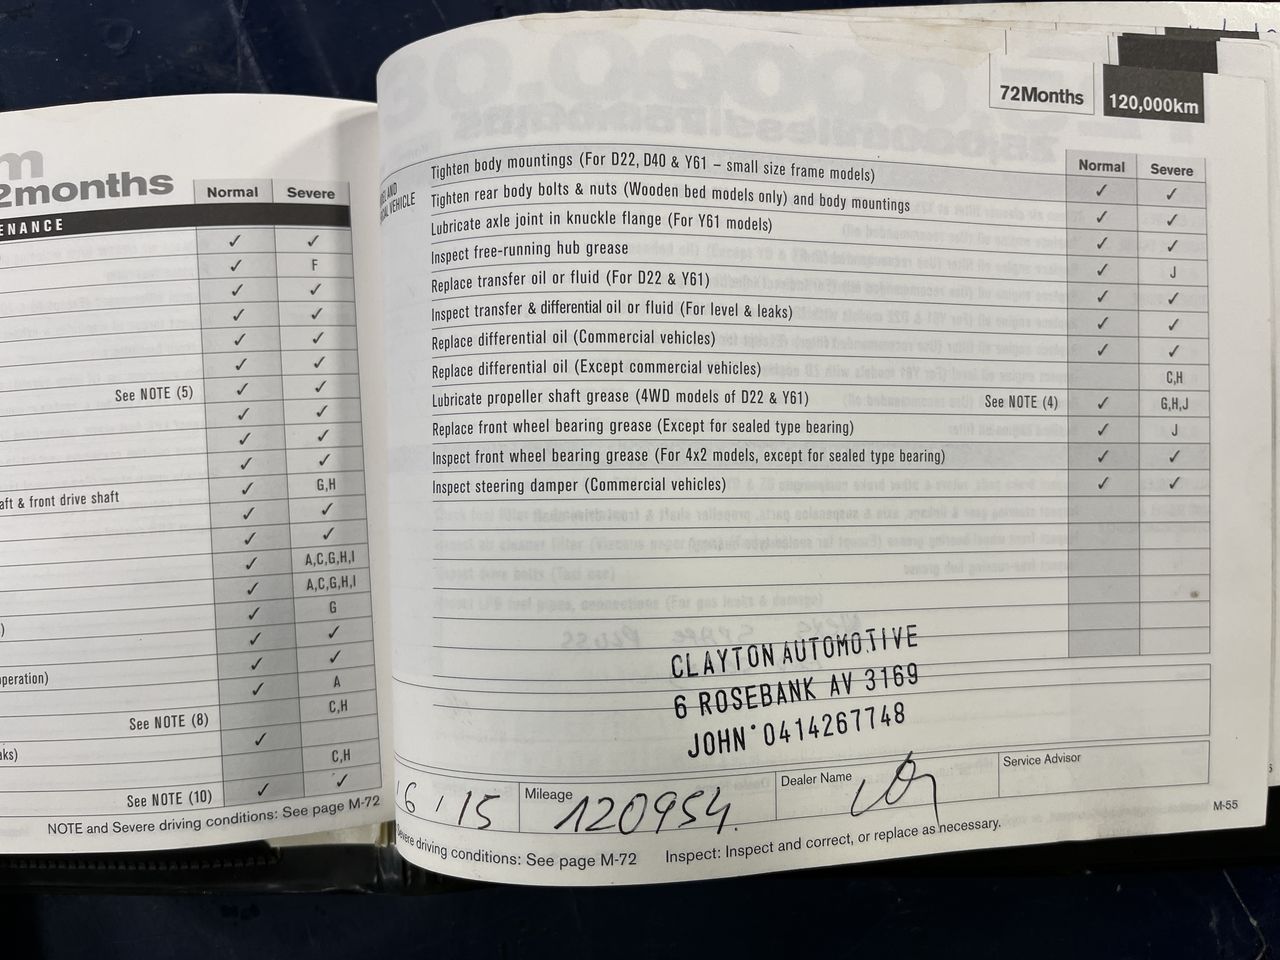 m
2months
Normal Severe
ENANCE
✓ ✓
✓ F
✓ ✓
✓ ✓
✓ ✓
✓ ✓
See NOTE (5) ✓ ✓
✓ ✓
✓ ✓
✓ ✓
aft & front drive shaft ✓ G,H
✓ ✓
✓ ✓
✓ A,C,G,H,I
✓ A,C,G,H,I
✓ G
) ✓ ✓
✓ ✓
peration) ✓ A
See NOTE (8) C,H
aks) ✓
C,H
See NOTE (10) ✓ ✓
NOTE and Severe driving conditions: See page M-72
72Months 120,000km
Normal Severe
AND
VEHICLE
Tighten body mountings (For D22, D40 & Y61 – small size frame models) ✓ ✓
Tighten rear body bolts & nuts (Wooden bed models only) and body mountings ✓ ✓
Lubricate axle joint in knuckle flange (For Y61 models) ✓ ✓
Inspect free-running hub grease ✓ J
Replace transfer oil or fluid (For D22 & Y61) ✓ ✓
Inspect transfer & differential oil or fluid (For level & leaks) ✓ ✓
Replace differential oil (Commercial vehicles) ✓ ✓
Replace differential oil (Except commercial vehicles) C,H
Lubricate propeller shaft grease (4WD models of D22 & Y61) See NOTE (4) ✓ G,H,J
Replace front wheel bearing grease (Except for sealed type bearing) ✓ J
Inspect front wheel bearing grease (For 4x2 models, except for sealed type bearing) ✓ ✓
Inspect steering damper (Commercial vehicles) ✓ ✓
CLAYTON AUTOMOTIVE
6 ROSEBANK AV 3169
JOHN 0414267748
6 / 15 Mileage 120954. Dealer Name Service Advisor
Severe driving conditions: See page M-72 Inspect: Inspect and correct, or replace as necessary.
M-55